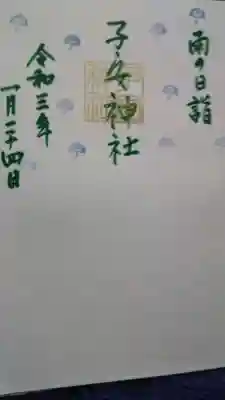 雨の日詣
子安神社
令和三年
一月二十四日